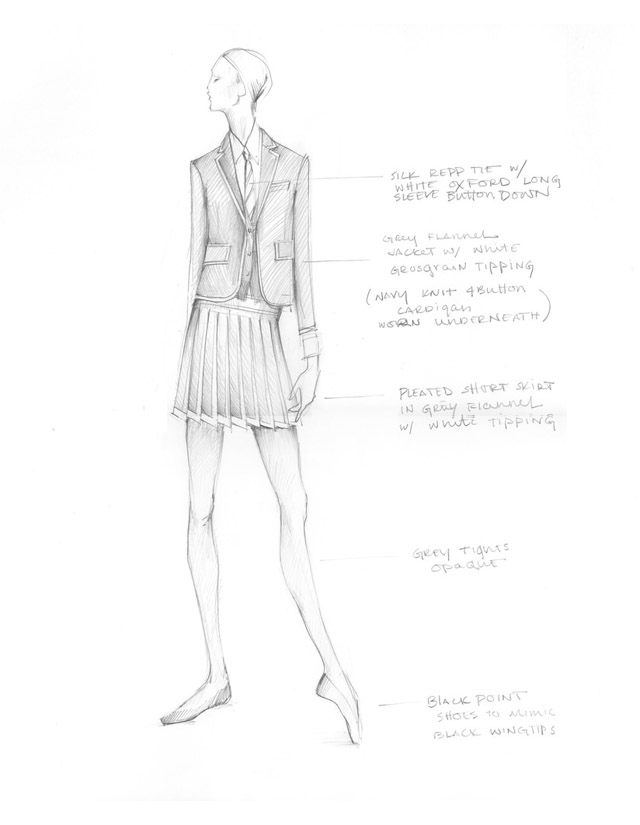 SILK REPP TIE W/
WHITE OXFORD LONG
SLEEVE BUTTON DOWN
GREY FLANNEL
JACKET W/ WHITE
GROSGRAIN TIPPING
(NAVY KNIT 4 BUTTON
CARDIGAN
WORN UNDERNEATH)
PLEATED SHORT SKIRT
IN GREY FLANNEL
W/ WHITE TIPPING
GREY TIGHTS
OPAQUE
BLACK POINT
SHOES TO MIMIC
BLACK WINGTIPS